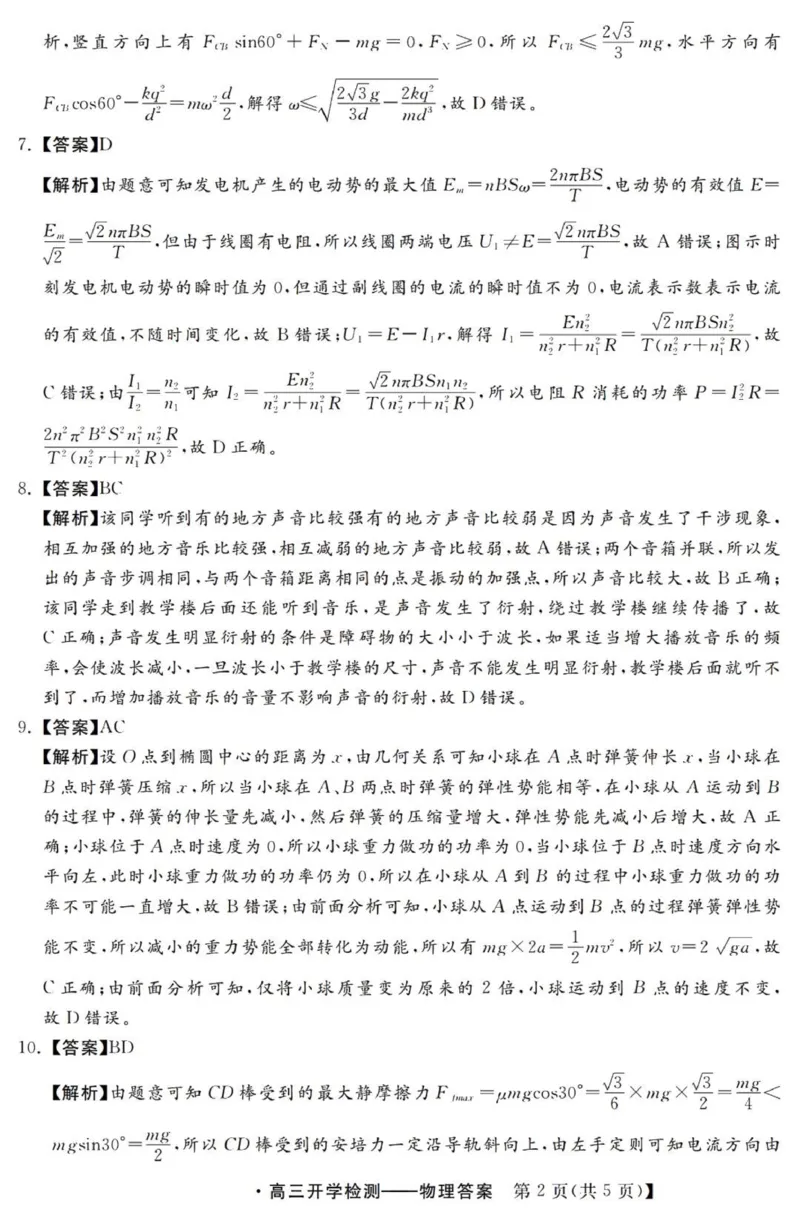 析,竖直方向上有 F_CB sin60°+F_N−mg=0,F_N≥0,所以 F_CB≤2√3/3 mg,水平方向有
F_CB cos60°−kq²/d²=mω² d/2,解得 ω≤√(2√3g/3d−2kq²/md³),故 D 错误。
7.【答案】D
【解析】由题意可知发电机产生的电动势的最大值 E_m=nBSω=2nπBS/T,电动势的有效值 E=
E_m/√2=√2nπBS/T,但由于线圈有电阻,所以线圈两端电压 U₁≠E=√2nπBS/T,故 A 错误;图示时
刻发电机电动势的瞬时值为 0,但通过副线圈的电流的瞬时值不为 0,电流表示数表示电流
的有效值,不随时间变化,故 B 错误;U₁=E−I₁r,解得 I₁=En₂²/(n₂²r+n₁²R)=√2nπBSn₂²/T(n₂²r+n₁²R),故
C 错误;由 I₁/I₂=n₂/n₁ 可知 I₂=En₂²/(n₂²r+n₁²R)=√2nπBSn₁n₂/T(n₂²r+n₁²R),所以电阻 R 消耗的功率 P=I₂²R=
2n²π²B²S²n₁²n₂²R/T²(n₂²r+n₁²R)²,故 D 正确。
8.【答案】BC
【解析】该同学听到有的地方声音比较强有的地方声音比较弱是因为声音发生了干涉现象,
相互加强的地方音乐比较强,相互减弱的地方声音比较弱,故 A 错误;两个音箱并联,所以发
出的声音步调相同,与两个音箱距离相同的点是振动的加强点,所以声音比较大,故 B 正确;
该同学走到教学楼后面还能听到音乐,是声音发生了衍射,绕过教学楼继续传播了,故
C 正确;声音发生明显衍射的条件是障碍物的大小小于波长,如果适当增大播放音乐的频
率,会使波长减小,一旦波长小于教学楼的尺寸,声音不能发生明显衍射,教学楼后面就听不
到了,而增加播放音乐的音量不影响声音的衍射,故 D 错误。
9.【答案】AC
【解析】设 O 点到椭圆中心的距离为 x,由几何关系可知小球在 A 点时弹簧伸长 x,当小球在
B 点时弹簧压缩 x,所以当小球在 A、B 两点时弹簧的弹性势能相等,在小球从 A 运动到 B
的过程中,弹簧的伸长量先减小,然后弹簧的压缩量增大,弹性势能先减小后增大,故 A 正
确;小球位于 A 点时速度为 0,所以小球重力做功的功率为 0,当小球位于 B 点时速度方向水
平向左,此时小球重力做功的功率仍为 0,所以在小球从 A 到 B 的过程中小球重力做功的功
率不可能一直增大,故 B 错误;由前面分析可知,小球从 A 点运动到 B 点的过程弹簧弹性势
能不变,所以减小的重力势能全部转化为动能,所以有 mg×2a=1/2 mv²,所以 v=2√ga,故
C 正确;由前面分析可知,仅将小球质量变为原来的 2 倍,小球运动到 B 点的速度不变,
故 D 错误。
10.【答案】BD
【解析】由题意可知 CD 棒受到的最大静摩擦力 F_fmax=μmgcos30°=√3/6×mg×√3/2=mg/4<
mgsin30°=mg/2,所以 CD 棒受到的安培力一定沿导轨斜向上,由左手定则可知电流方向由
·高三开学检测——物理答案 第 2 页(共 5 页)】